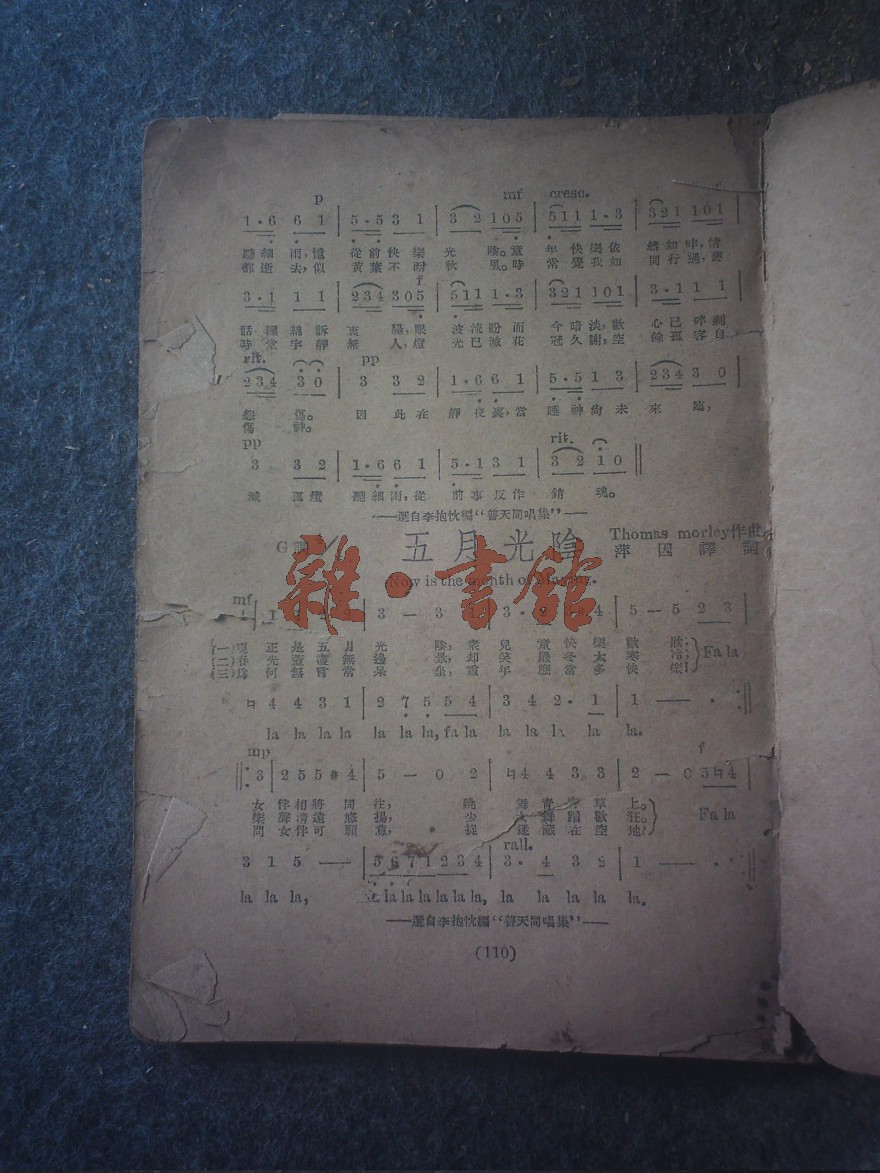 p mf cresc. f
1·6 6 1 | 5·5 3 1 | 3 2 105 | 511 1·3 | 321 101 |
聽細雨,憶 從前快樂 光 陰。童 年快樂依 緒如昨,情
都逝去,似 黃葉不耐 秋 風。時 常覺我如
f
3·1 1 1 | 234 305 | 511 1·3 | 321 101 | 3·1 1 1 |
話纏綿訴 衷 腸,眼 波流盼而 今暗淡,歡 心已碎剩
時堂宇靜 無 人,燈 光已滅花 冠久謝,空 餘孤客自
rit. pp
234 3 0 | 3 3 2 | 1·6 6 1 | 5·5 1 3 | 234 3 0 |
怨 傷。 因 此在 靜夜裏,當 睡神尙未 來 臨,
傷 神。
pp rit.
3 3 2 | 1·6 6 1 | 5·1 3 1 | 3 2 1 0 ‖
滅 孤燈 聽細雨,從 前事反作 銷 魂。
——選自李抱忱編“普天同唱集”——
G調 五月光陰 Thomas morley作曲
Now is the month of Maying. 萍因譯詞
雜·書館
mf
(一)現 正是五月光 陰,衆兒童快樂歡 欣;
(二)春 光 無邊 却笑嚴冬太寒 冷;
(三)爲 何 常呆 童年應當多快 樂!
Fa la
♮4 4 3 1 | 2 7 5 5 4 | 3 4 2· 1 | 1 — · :‖
la la la la la la la, fa la la la la la la.
mp f
‖: 3 | 2 5 5 #4 | 5 — 0 2 | ♮4 4 3 3 | 2 — 0 3♮4
女 伴相將同 往, 跳 舞靑 草 上。
樂 聲清遠悠 揚, 少 舞蹈歡 狂。
問 女伴可願 意, 捉 迷藏在空 地?
Fa la
rall.
3 1 5 — | 5 6 7 1 2 3 4 | 3· 4 3 2 | 1 — · :‖
la la la, la la la la la la, la la la la la.
——選自李抱忱編“普天同唱集”——
(110)